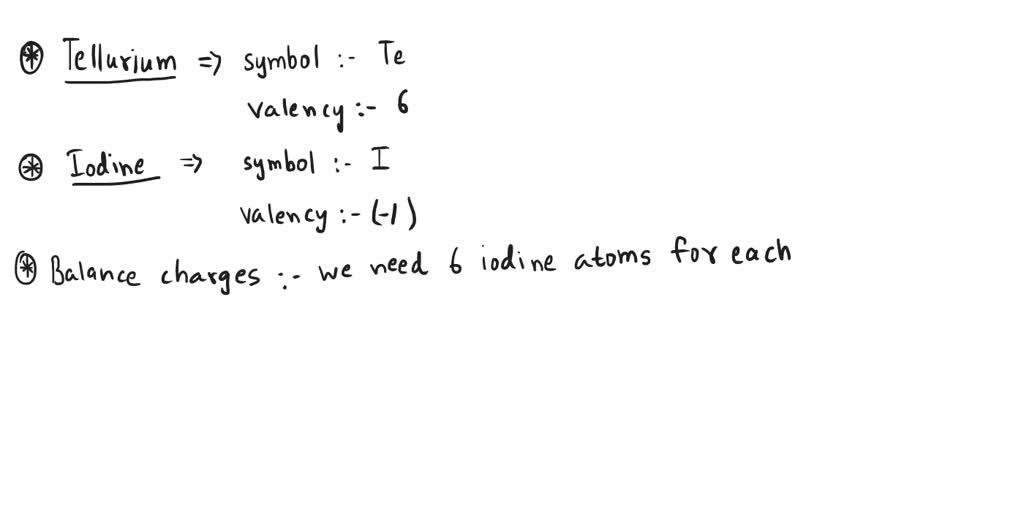 ⊛ Tellurium => symbol :- Te
valency :- 6
⊛ Iodine => symbol :- I
valency :- (-1)
⊛ Balance charges :- we need 6 iodine atoms for each